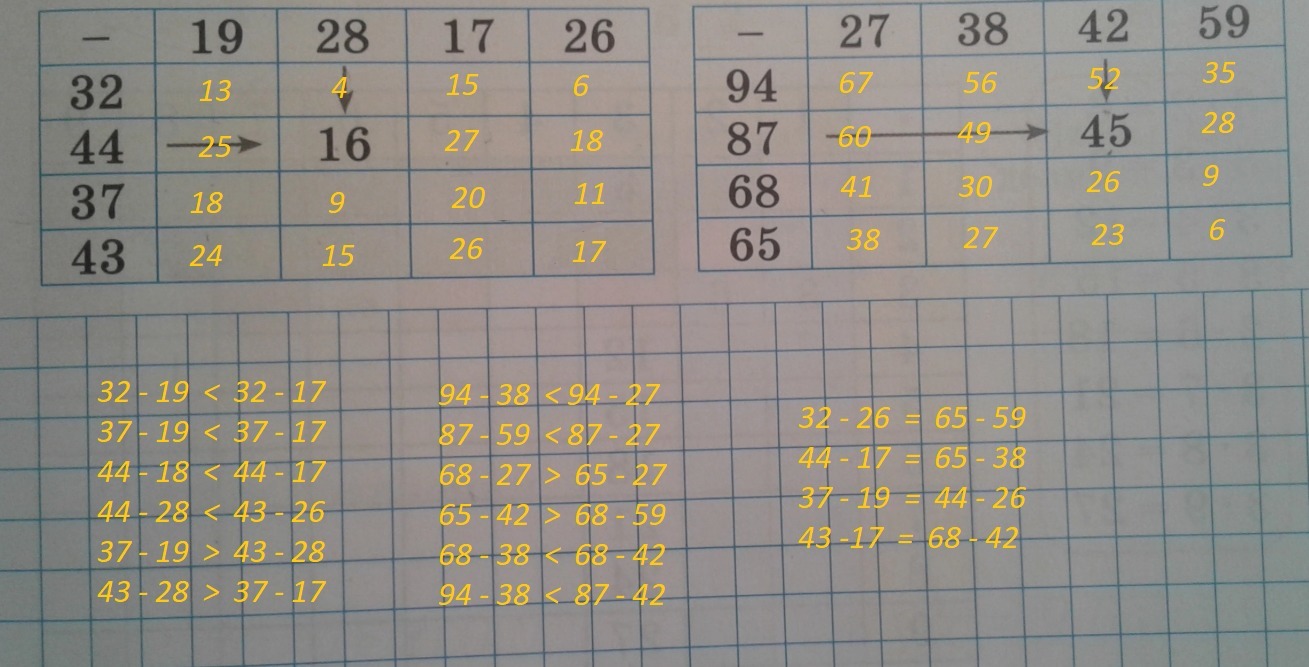 − 19 28 17 26
32 13 4 15 6
44 25 16 27 18
37 18 9 20 11
43 24 15 26 17
− 27 38 42 59
94 67 56 52 35
87 60 49 45 28
68 41 30 26 9
65 38 27 23 6
32 - 19 < 32 - 17
37 - 19 < 37 - 17
44 - 18 < 44 - 17
44 - 28 < 43 - 26
37 - 19 > 43 - 28
43 - 28 > 37 - 17
94 - 38 < 94 - 27
87 - 59 < 87 - 27
68 - 27 > 65 - 27
65 - 42 > 68 - 59
68 - 38 < 68 - 42
94 - 38 < 87 - 42
32 - 26 = 65 - 59
44 - 17 = 65 - 38
37 - 19 = 44 - 26
43 -17 = 68 - 42